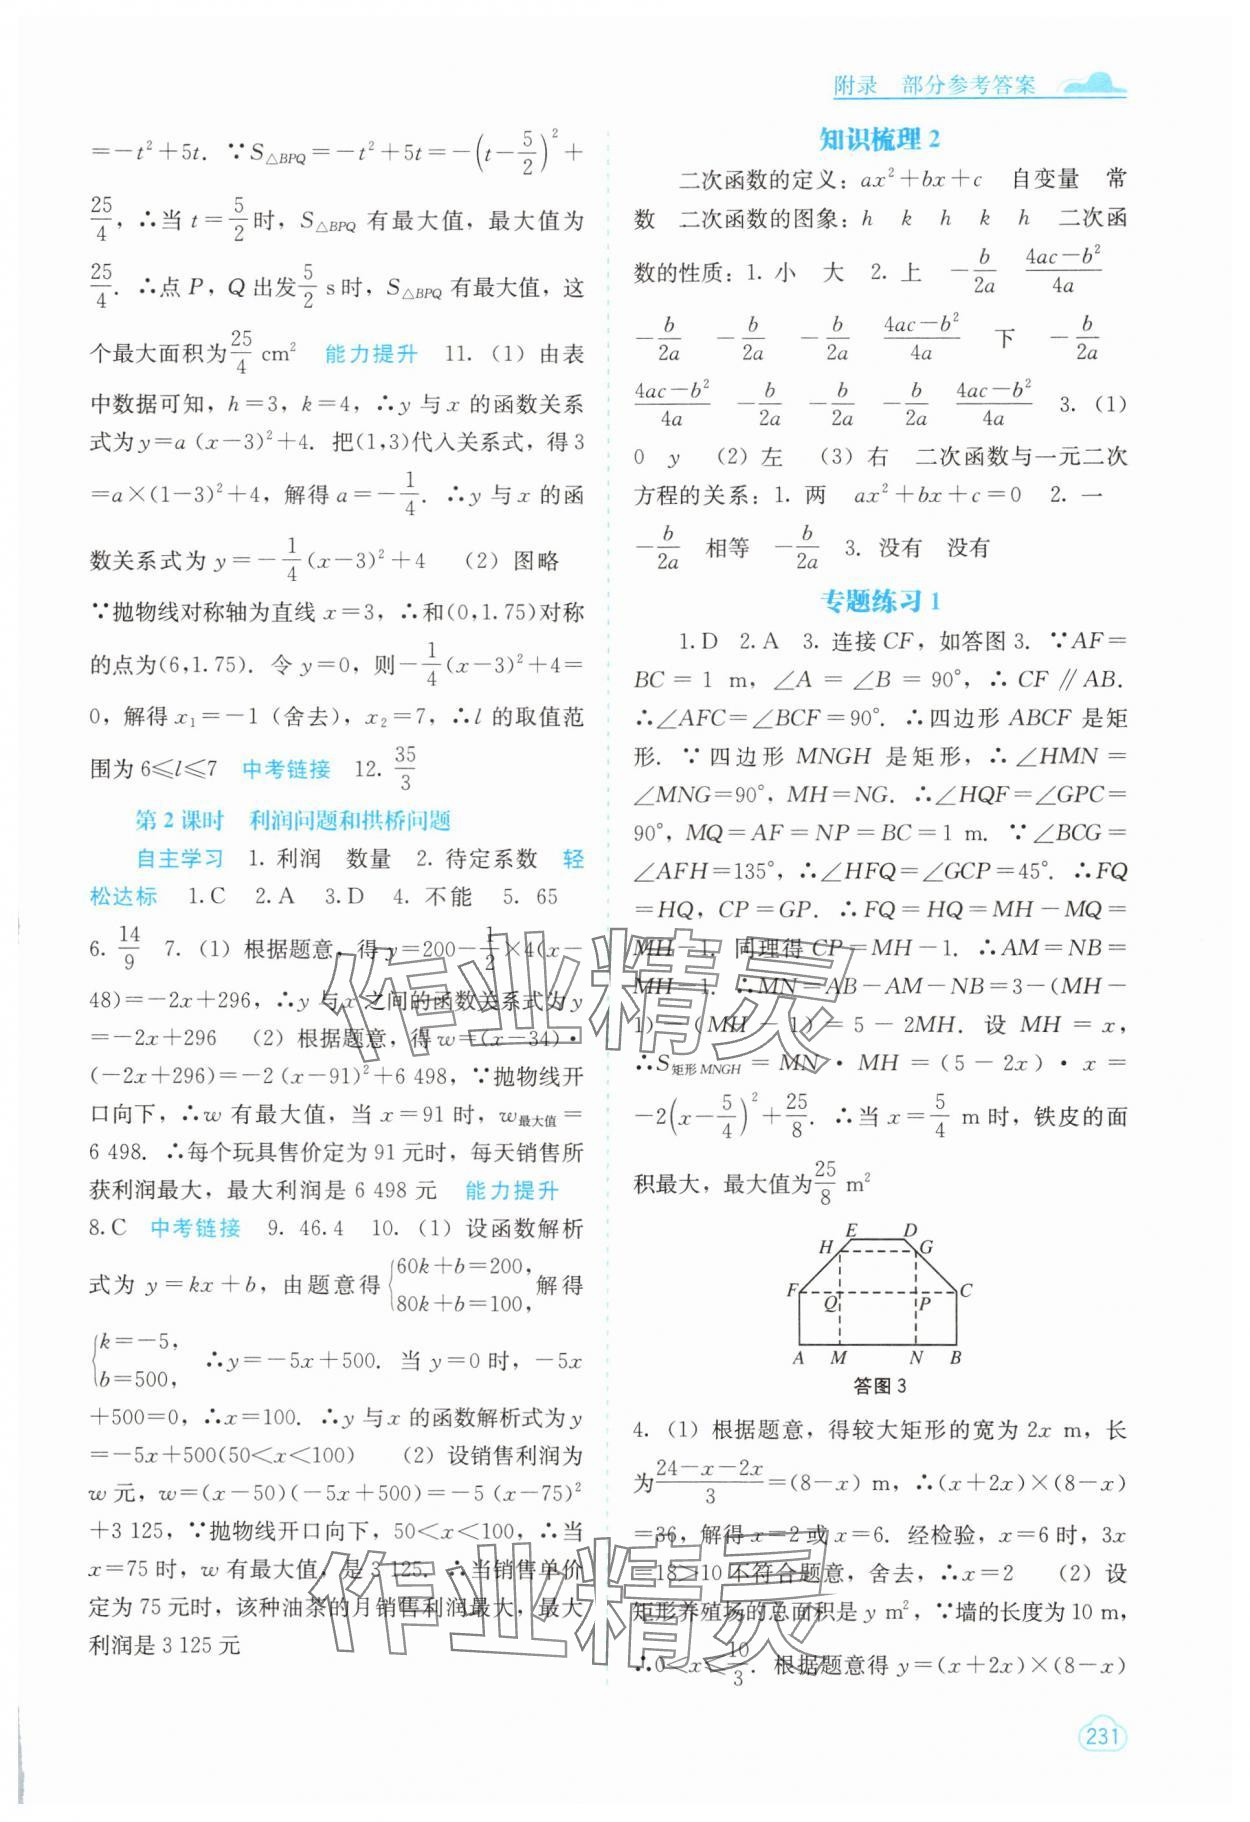 附录　部分参考答案
=-t²+5t. ∵S△BPQ=-t²+5t=-(t-5/2)²+
25/4, ∴当 t=5/2时, S△BPQ 有最大值, 最大值为
25/4. ∴点 P, Q 出发5/2 s时, S△BPQ 有最大值, 这
个最大面积为25/4 cm²　能力提升　11. (1) 由表
中数据可知, h=3, k=4, ∴y 与 x 的函数关系
式为 y=a (x-3)²+4. 把(1,3)代入关系式, 得 3
=a×(1-3)²+4, 解得 a=-1/4. ∴y 与 x 的函
数关系式为 y=-1/4(x-3)²+4　(2) 图略
∵抛物线对称轴为直线 x=3, ∴和(0,1.75)对称
的点为(6,1.75). 令 y=0, 则-1/4(x-3)²+4=
0, 解得 x₁=-1 (舍去), x₂=7, ∴l 的取值范
围为 6≤l≤7　中考链接　12. 35/3
第 2 课时　利润问题和拱桥问题
自主学习　1. 利润　数量　2. 待定系数　轻
松达标　1.C　2.A　3.D　4. 不能　5. 65
6. 14/9　7. (1) 根据题意, 得 y=200-1/2×4(x-
48)=-2x+296, ∴y 与 x 之间的函数关系式为 y
=-2x+296　(2) 根据题意, 得 w=(x-34)·
(-2x+296)=-2 (x-91)²+6 498, ∵抛物线开
口向下, ∴w 有最大值, 当 x=91 时, w最大值=
6 498. ∴每个玩具售价定为 91 元时, 每天销售所
获利润最大, 最大利润是 6 498 元　能力提升
8.C　中考链接　9. 46.4　10. (1) 设函数解析
式为 y=kx+b, 由题意得{60k+b=200, 80k+b=100, 解得
{k=-5, b=500, ∴y=-5x+500. 当 y=0 时, -5x
+500=0, ∴x=100. ∴y 与 x 的函数解析式为 y
=-5x+500(50<x<100)　(2) 设销售利润为
w 元, w=(x-50)(-5x+500)=-5 (x-75)²
+3 125, ∵抛物线开口向下, 50<x<100, ∴当
x=75 时, w 有最大值, 是 3 125. ∴当销售单价
定为 75 元时, 该种油茶的月销售利润最大, 最大
利润是 3 125 元
知识梳理 2
二次函数的定义: ax²+bx+c　自变量　常
数　二次函数的图象: h　k　h　k　h　二次函
数的性质: 1. 小　大　2. 上　-b/2a　(4ac-b²)/4a
-b/2a　-b/2a　-b/2a　(4ac-b²)/4a　下　-b/2a
(4ac-b²)/4a　-b/2a　-b/2a　-b/2a　(4ac-b²)/4a　3. (1)
0　y　(2) 左　(3) 右　二次函数与一元二次
方程的关系: 1. 两　ax²+bx+c=0　2. 一
-b/2a　相等　-b/2a　3. 没有　没有
专题练习 1
1.D　2.A　3. 连接 CF, 如答图 3. ∵AF=
BC=1 m, ∠A=∠B=90°, ∴CF∥AB.
∴∠AFC=∠BCF=90°. ∴四边形 ABCF 是矩
形. ∵四边形 MNGH 是矩形, ∴∠HMN=
∠MNG=90°, MH=NG. ∴∠HQF=∠GPC=
90°, MQ=AF=NP=BC=1 m. ∵∠BCG=
∠AFH=135°, ∴∠HFQ=∠GCP=45°. ∴FQ
=HQ, CP=GP. ∴FQ=HQ=MH-MQ=
MH-1. 同理得 CP=MH-1. ∴AM=NB=
MH-1. ∴MN=AB-AM-NB=3-(MH-
1)-(MH-1)=5-2MH. 设 MH=x,
∴S矩形MNGH=MN·MH=(5-2x)·x=
-2(x-5/4)²+25/8. ∴当 x=5/4 m 时, 铁皮的面
积最大, 最大值为25/8 m²
E D
H G
F Q P C
A M N B
答图 3
4. (1) 根据题意, 得较大矩形的宽为 2x m, 长
为(24-x-2x)/3=(8-x) m, ∴(x+2x)×(8-x)
=36, 解得 x=2 或 x=6. 经检验, x=6 时, 3x
=18>10 不符合题意, 舍去, ∴x=2　(2) 设
矩形养殖场的总面积是 y m², ∵墙的长度为 10 m,
∴0<x≤10/3. 根据题意得 y=(x+2x)×(8-x)
231
作业精灵
作业精灵